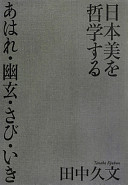 日本美を
哲学する
あはれ・幽玄・さび・いき
田中久文
Tanaka Kyubun